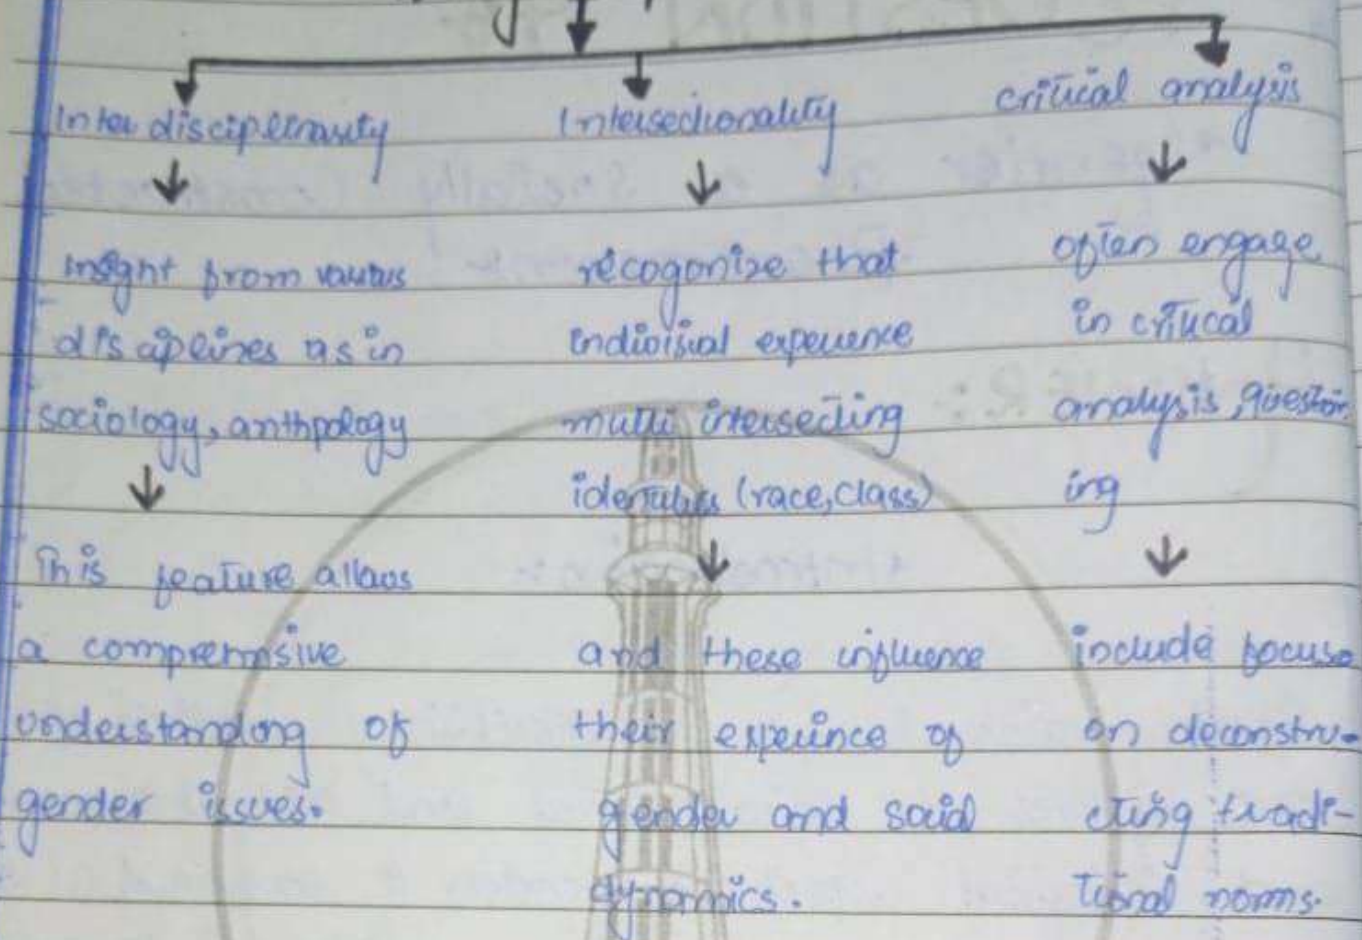 Inter disciplinarity
insight from various
disciplines as in
sociology, anthpology
This feature allows
a comprehensive
understanding of
gender issues.
Intersectionality
recogonize that
indivisial experience
multi intersecting
identities (race, class)
and these influence
their experince of
gender and social
dynamics.
critical analysis
often engage
in critical
analysis, question
ing
include focuse
on deconstru-
cting tradi-
tional norms.